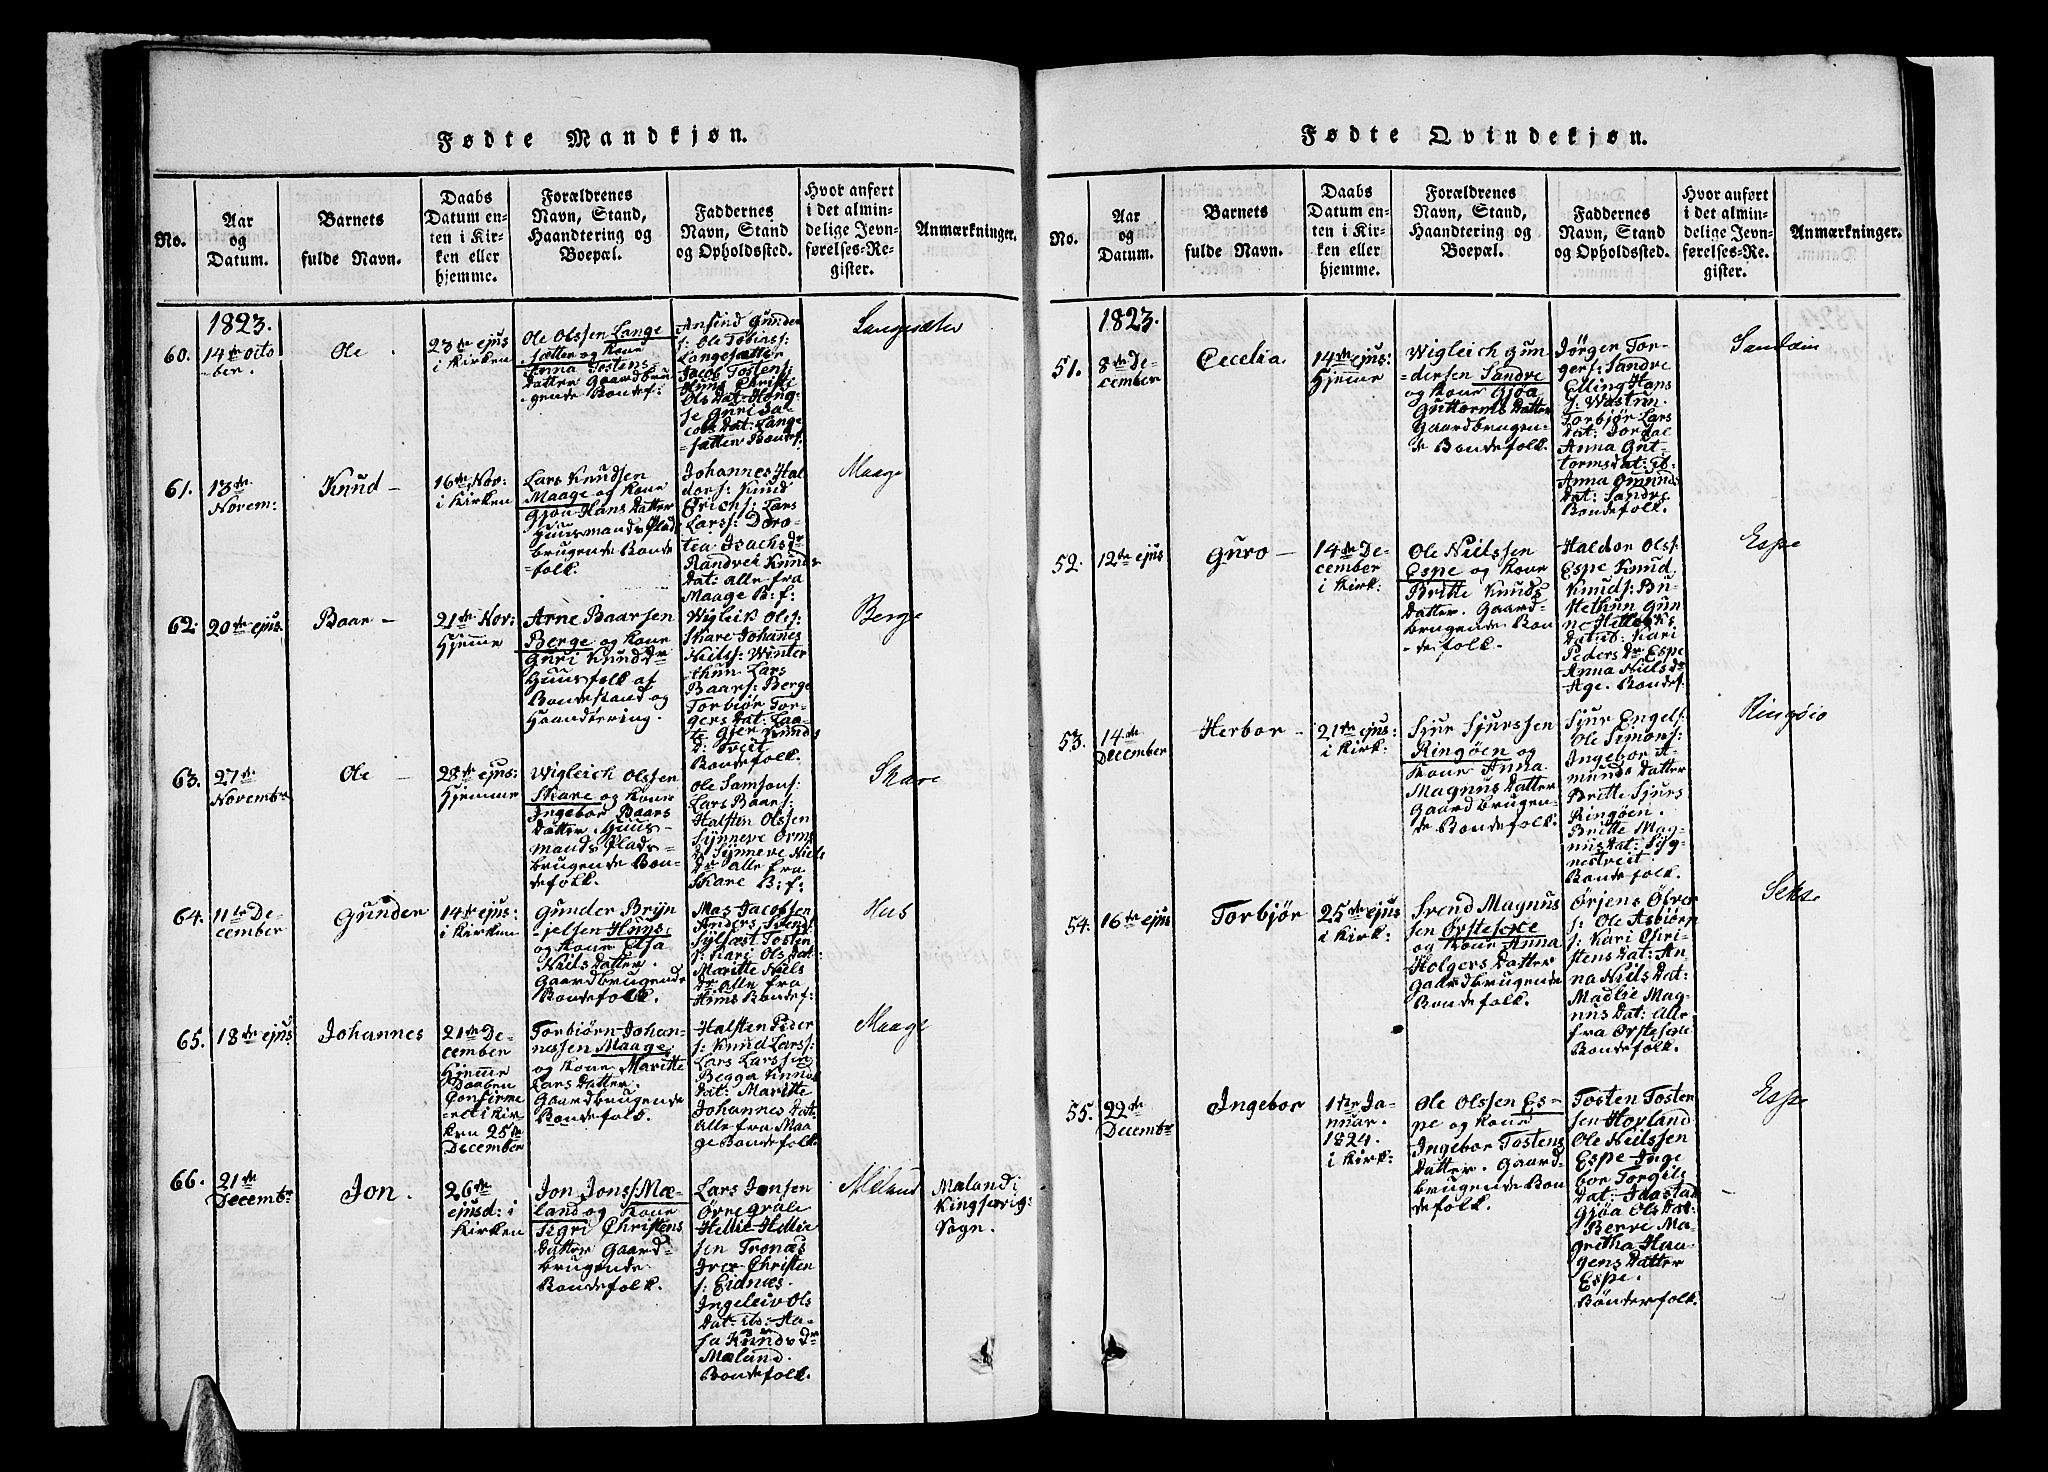 Fødte Mandkjøn.
No.
Aar
og
Datum.
Barnets
fulde Navn.
Daabs
Datum en-
ten i Kir-
ken eller
hjemme.
Forældrenes
Navn, Stand,
Haandtering og
Boepæl.
Faddernes
Navn, Stand
og Opholdssted.
Hvor anført
i det almin-
delige Jevn-
førelses-Re-
gister.
Anmærkninger.
1823.
60.
14de octo
ber.
Ole
23de ejus
i Kirken
Ole Olssen Lange
sætter og Kone
Anna Tostens
Datter Gaardbru
gende Bondef:
Ansind Gunder
s: Ole Tobias:
Langesætter
Jacob Tostens:
Anna Christi
Ols Dat: Hong-
se Guri Ja-
cobs Dat: Lange
-sætter Bondef:
Langesæter
61.
13de
Novem:
Knud
16de Nov:
i Kirken
Lars Knudsen
Maage og Kone
Gjøa Hans Datter
Huusmands Plad
brugende Bonde
folk.
Johannes Hal
dors: Knud
Erichs: Lars
Lars: Doro-
tea Isachs dr
Randvei Knuds
Dat: alle fra
Maage B: f:
Maage
62.
20de ejus
Baar
21de Nov:
Hjemme
Arne Baarsen
Berge og Kone
Guri Knuds Dr
Huusfolk af
Bondestand og
Haandtering.
Wigleik Ols:
Skare Johanes
Niels: Winter
thun Lars
Baars: Berge
Torbiør Tor-
gers Dat:
Gjer Knuds
d: Treit
Bondefolk.
Berge
63.
27de
Novembr
Ole
28de ejus:
Hjemme
Wigleich Olssen
Skare og Kone
Ingebor Baars
Datter. Huus-
mands Plads-
brugende Bon-
defolk.
Ole Samsons:
Lars Baars:
Halsten Olssen
Synneve Orms
D: Synneve Niels
Dr alle fra
Skare B: f:
Skare
64.
11te De-
cember
Gunder
14de ejus:
i Kirken
Gunder Bryn
jelsen Huus
og Kone Elsa
Niels Datter.
Gaardbrugende
Bondefolk.
Mas Jacobsen
Anders Svend
Sylfæst Tosten
s: Kari Ols Dat:
Maritte Niels
Dr alle fra
Huus Bondef:
Hus
65.
18de ejus
Johannes
21de De-
cember
Hjemme
Daaben
Confirme
-ret i Kir
ken 25de
December
Torbiørn Johan-
nessen Maage
og Kone Maritte
Lars Datter.
Gaardbrugende
Bondefolk.
Halsten Peder
s: Knud Lars:
Lars Larssen
Begga Knuds
Dat: Maritte
Johannes Dat:
Alle fra Maa
ge Bondefolk.
Maage
66.
21de
Decembr
Jon.
26de
ejusd: i
Kirken
Jon Jons: Mæ-
land og Kone
Sigri Christens
Datter Gaard-
brugende
Bondefolk.
Lars Jonsen
Ovregrate
Hellie Hellie
sen Tronæs
Iver Christen
s: Eidnæs.
Ingeleiv Ols
Dat: ibs: Aa-
sa Knuds Dr
Mæland.
Bondefolk.
Mæland
Mæland i
Kingservig:
Sogn.
Fødte Qvindekjøn.
No.
Aar
og
Datum.
Barnets
fulde Navn.
Daabs
Datum en-
ten i Kir-
ken eller
hjemme.
Forældrenes
Navn, Stand,
Haandtering og
Boepæl.
Faddernes
Navn, Stand
og Opholdssted.
Hvor anført
i det almin-
delige Jevn-
førelses-Re-
gister.
Anmærkninger.
1823.
51.
8de De-
cember
Cecelia
14de ejus:
Hjemme
Wigleich Gun
dersen Sandve
og Kone Gjøa
Guttorms Datter
Gaardbrugen-
de Bondefolk.
Jørgen Tor-
gers: Sandve
Elling Hans
s: Wastun.
Torbjør Lars
Dat: Jordal
Anna Gut-
tormsdat: ib.
Anna Omunds
Dat: Sandve
Bondefolk.
52.
12te ejus
Guro
14de De-
cember
i Kirk:
Ole Nielssen
Espe og Kone
Britte Knuds
Datter. Gaard-
brugende Bon
-defolk.
Haldor Ols:
Espe Knud
Knuds: Bu-
Hethun Gun
Datt: Kari
Peders Dr Espe
Anna Niels Dr
Age. Bondef:
Espe
53.
14de
December
Herbor
21de ejus:
i Kirk:
Sjur Sjurssen
Ringøen og
Kone Anna
Magnus Datter
Gaardbrugen-
de Bondefolk.
Sjur Engels:
Ole Simons:
Ingebor A-
munds Datter
Britte Sjurs
Ringøen.
Britte Mag-
nus Dat: Syg-
nestveit.
Bondefolk.
Ringøio
54.
16de ejus
Torbjør
25de ejus
i Kirk:
Svend Magnus
sen Ørstesexe
og Kone Anna
Holgers Datter
Gaardbrugende
Bondefolk.
Ørjens Ølver
s: Ole Asbiørn
s: Kari Chri-
stens Dat: An-
na Niels Dat:
Madlie Mag-
nus Dat: Alle
fra Ørstesexe
Bondefolk.
Sekse
55.
22de
Decembr
Ingebor
1ste Ja-
nuar.
1824.
i Kirk:
Ole Olssen Es-
pe og Kone
Ingebor Tostens
Datter. Gaard-
brugende Bon
defolk.
Tosten Tosten
sen Hovland
Ole Nielssen
Espe Inge
bor Torgils
Dat: Jaastad
Gjøa Ols Dat:
Berve Ma-
gretha Haa-
gens Datter
Espe.
Bønderfolk.
Espe